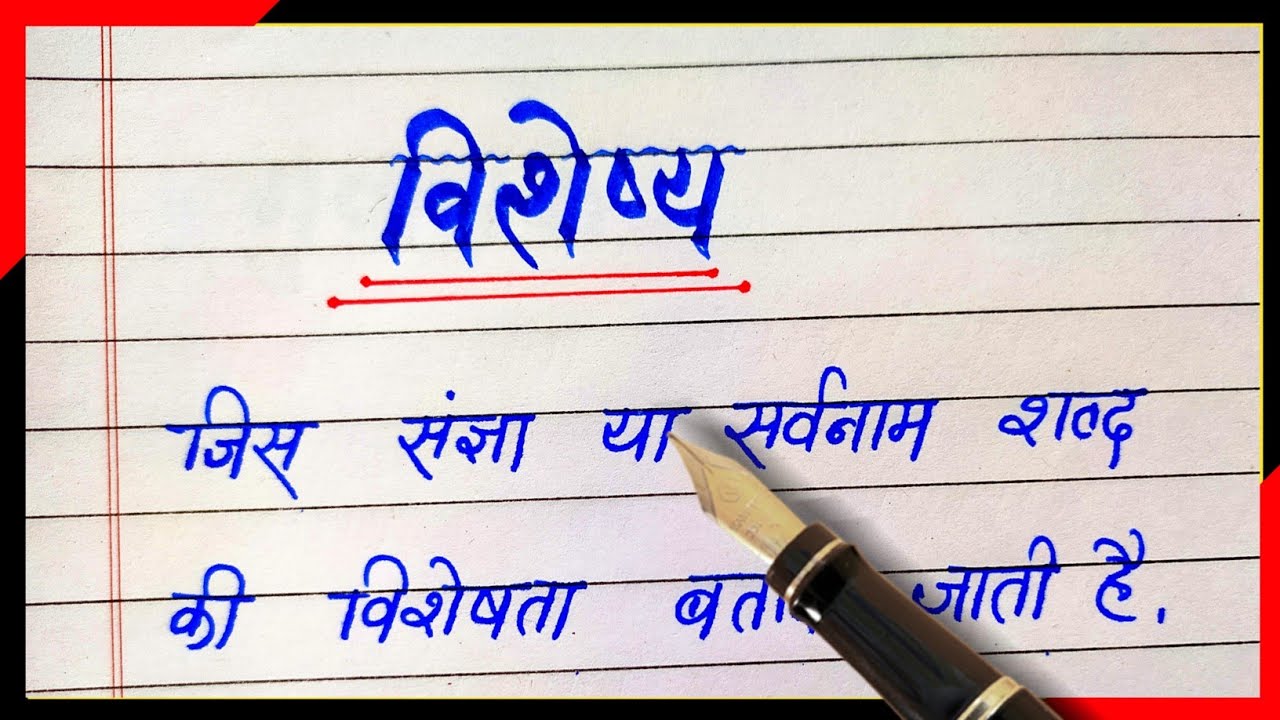 विशेष्य
जिस संज्ञा या सर्वनाम शब्द
की विशेषता जाती है.